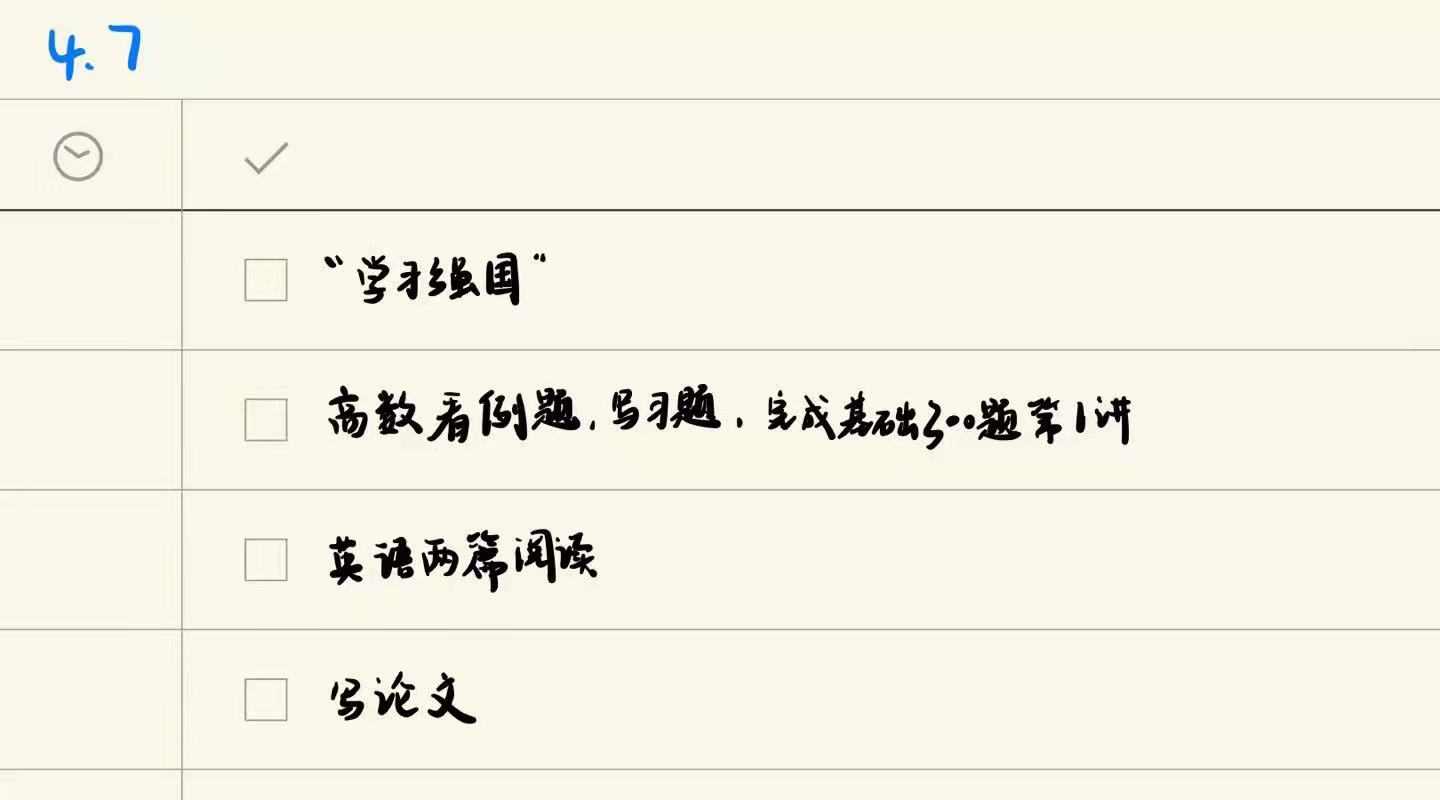 4.7
“学习强国”
高数看例题,写习题,完成基础300题第1讲
英语两篇阅读
写论文